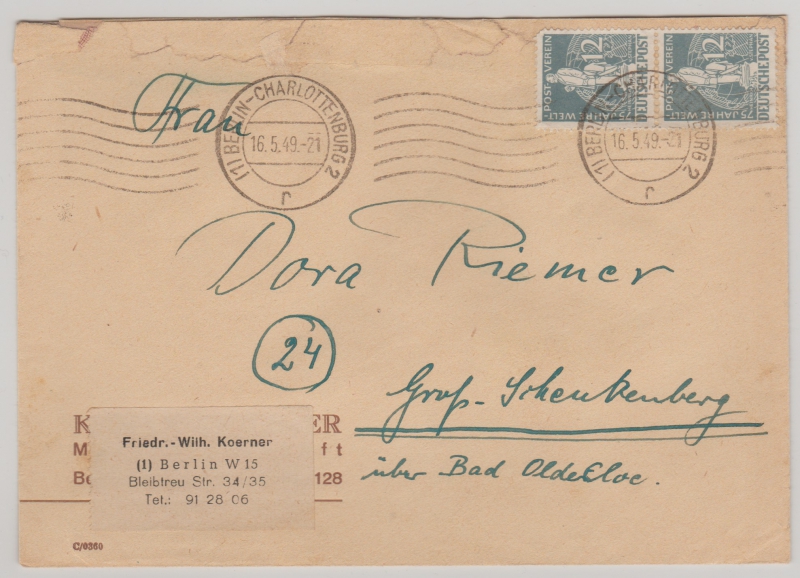 Frau
(1) BERLIN-CHARLOTTENBURG 2
16.5.49.-21
r
12
POST VEREIN
75 JAHRE WELT
DEUTSCHE POST
12
POST VEREIN
75 JAHRE WELT
DEUTSCHE POST
(1) BERLIN-CHARLOTTENBURG 2
16.5.49.-21
r
Dora Riemer
24
Groß-Schenkenberg
über Bad Oldesloe.
K ER
M f t
128
Friedr.-Wilh. Koerner
(1) Berlin W 15
Bleibtreu Str. 34/35
Tel.: 91 28 06
C/0360